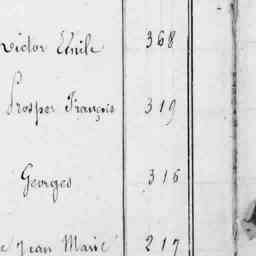 Victor Emile 368
Prosper François 319
Georges 316
Jean Marie 217